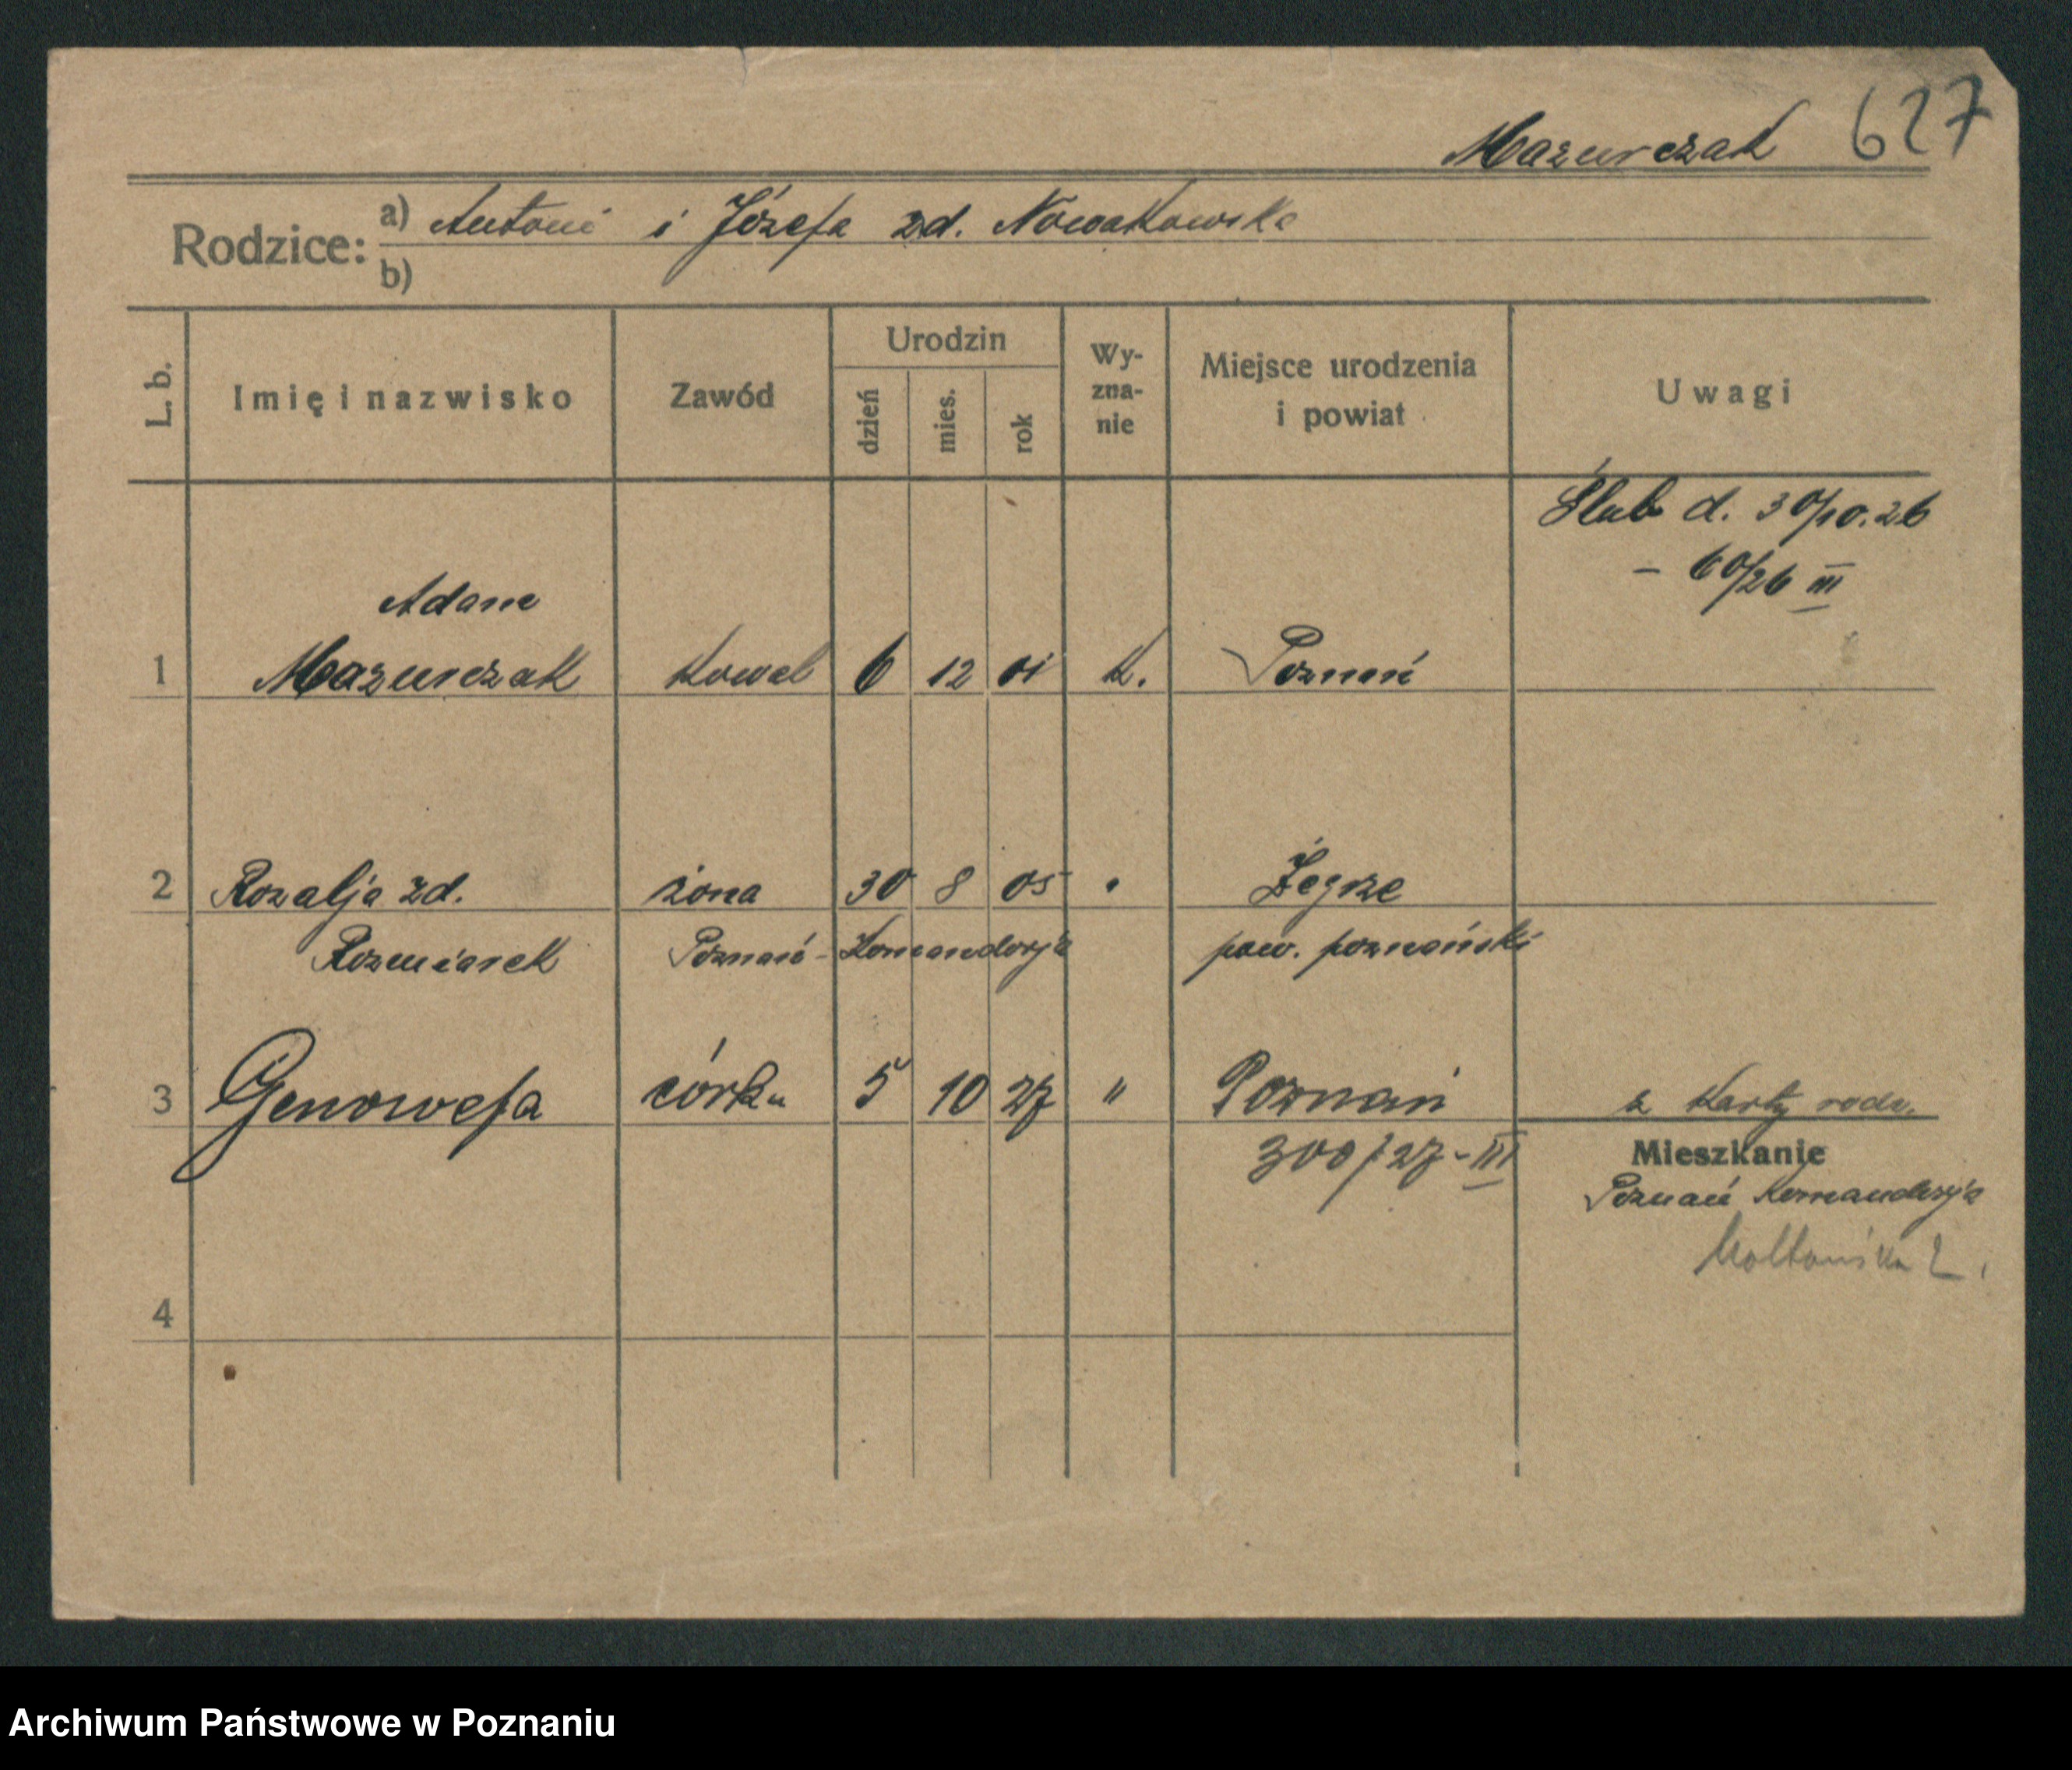 627
Mazurczak
Rodzice: a) Antoni i Józefa zd. Nowakowska
b)
L. b. Imię i nazwisko Zawód Urodzin dzień mies. rok Wy-zna-nie Miejsce urodzenia i powiat Uwagi
Ślub d. 30/10.26
- 60/26 III
Adam
1 Mazurczak Kowal 6 12 01 K. Poznań
2 Rozalja zd. żona 30 8 05 " Żegrze
Rozmiarek Poznań - Komandorja pow. poznański
3 Genowefa córka 5 10 27 " Poznań z Karty rodz.
300/27-III
Mieszkanie
Poznań Komandorja
4
Archiwum Państwowe w Poznaniu